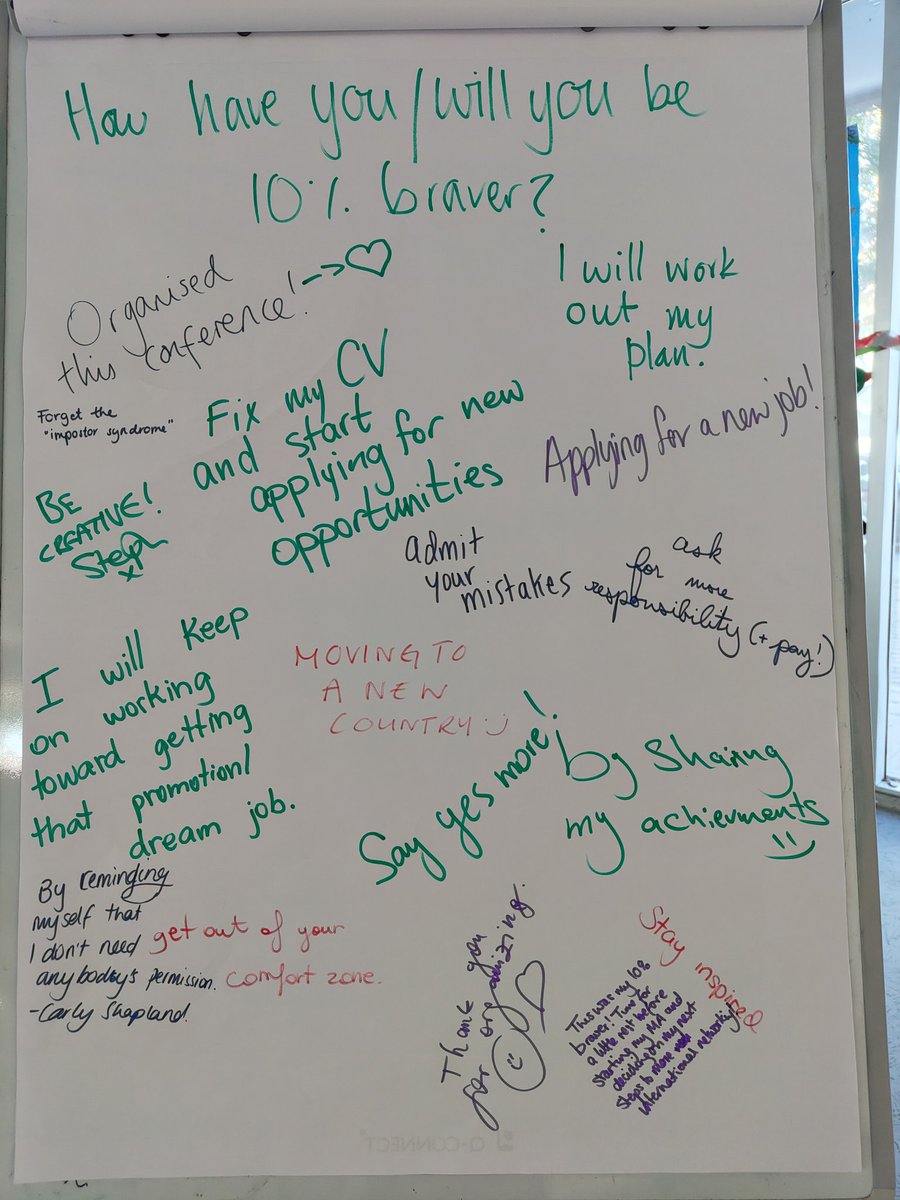 How have you/will you be
10% braver?
Organised
this conference! --> ♡
I will work
out my
plan.
Forget the
"impostor syndrome"
Fix my CV
and start
applying for new
opportunities
Applying for a new job!
BE
CREATIVE!
Steph
x
admit
your
mistakes
ask
for more
responsibility (+ pay!)
I will keep
on working
toward getting
that promotion/
dream job.
MOVING TO
A NEW
COUNTRY :)
Say yes more!
by Sharing
my achievments
By reminding
myself that
I don't need
anybody's permission.
- Carly Shapland.
get out of your
comfort zone.
Thank you
for organizing.
Stay inspired
This was my 10%
braver! Time for
a little rest before
starting my MA and
deciding on my next
steps to more
international networking
Q-CONNECT